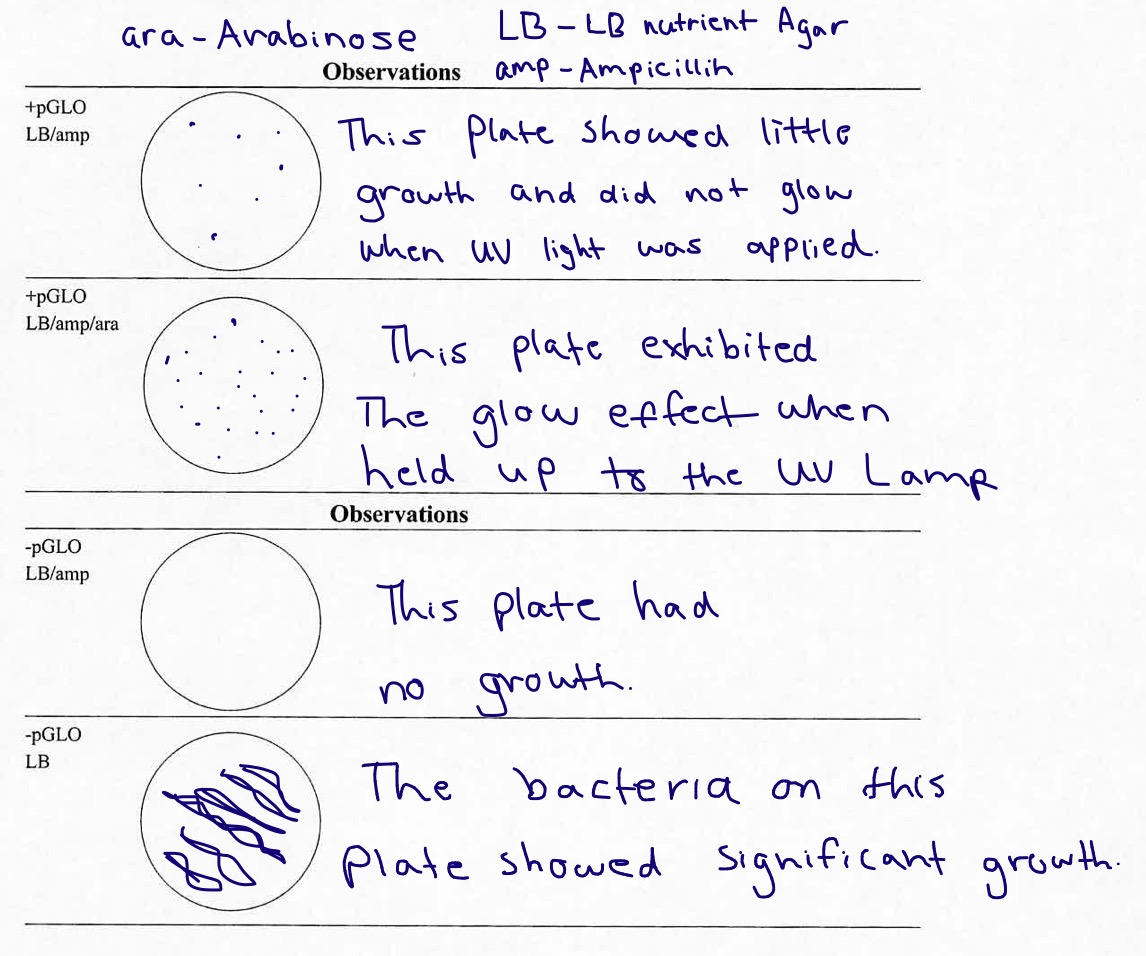 ara - Arabinose LB - LB nutrient Agar
Observations amp - Ampicillin
+pGLO
LB/amp
This plate showed little
growth and did not glow
when UV light was applied.
+pGLO
LB/amp/ara
This plate exhibited
The glow effect when
held up to the UV Lamp
Observations
-pGLO
LB/amp
This plate had
no growth.
-pGLO
LB
The bacteria on this
Plate showed significant growth.